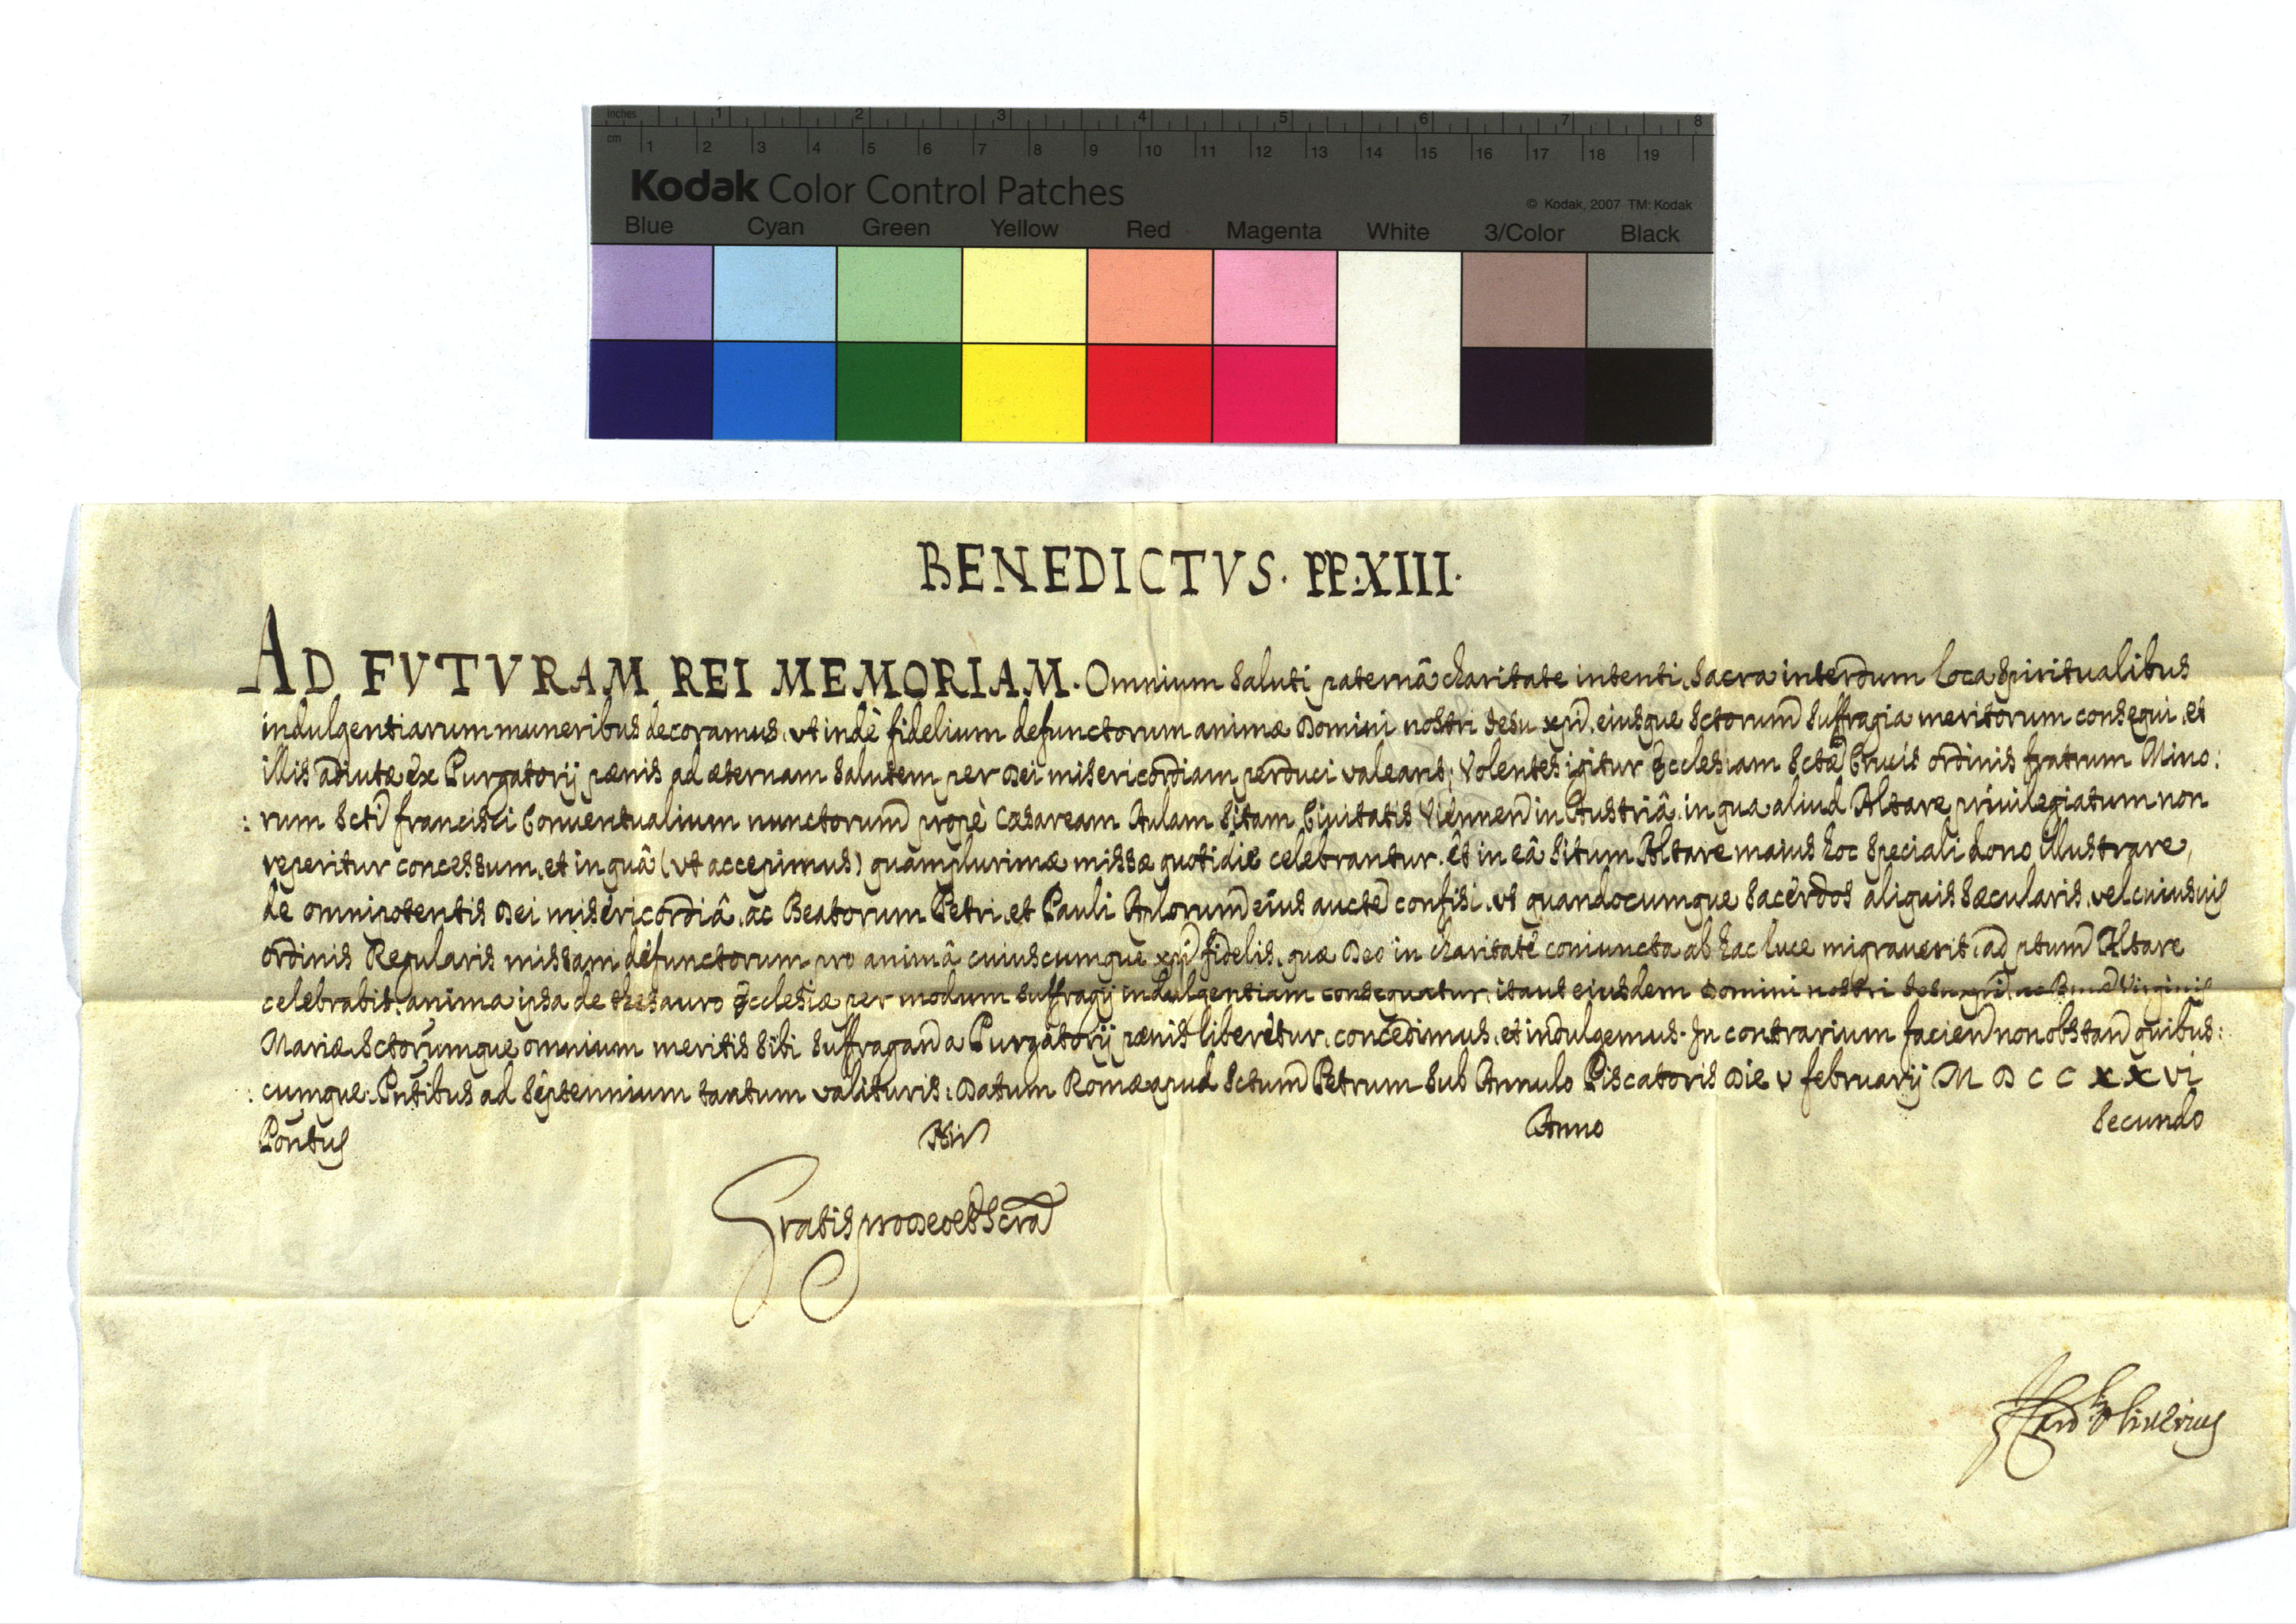 inches 1 2 3 4 5 6 7 8
cm 1 2 3 4 5 6 7 8 9 10 11 12 13 14 15 16 17 18 19
Kodak Color Control Patches
© Kodak, 2007 TM: Kodak
Blue Cyan Green Yellow Red Magenta White 3/Color Black
BENEDICTVS. PP. XIII.
AD FVTVRAM REI MEMORIAM. Omnium saluti paternâ charitate intenti, sacra interdum loca spiritualibus
indulgentiarum muneribus decoramus, vt indè fidelium defunctorum animæ Domini nostri Jesu xpi, eiusque sctorum suffragia meritorum consequi, et
illis adiutæ ex Purgatorij pænis ad æternam salutem per Dei misericordiam perduci valeant; Volentes igitur Ecclesiam Sctæ Crucis ordinis fratrum Mino:
: rum Scti francisci Conuentualium nunctorum propè Cæsaream Aulam sitam Ciuitatis Viennen in Austriâ, in qua aliud Altare priuilegiatum non
reperitur concessum, et in quâ (vt accepimus) quamplurimæ missæ quotidiè celebrantur, et in eâ situm Altare maius hoc speciali dono illustrare,
de omnipotentis Dei misericordiâ, ac Beatorum Petri, et Pauli Aplorum eius aucte confisi, vt quandocumque sacerdos aliquis sæcularis, vel cuiusuis
ordinis Regularis missam defunctorum pro animâ cuiuscumque xpi fidelis, quæ Deo in charitate coniuncta ab hac luce migrauerit, ad ptum Altare
celebrabit, anima ipsa de thesauro Ecclesiæ per modum suffragij indulgentiam consequatur, ita ut eiusdem Domini nostri Jesu xpi, ac Bmæ Virginis
Mariæ, Sctorumque omnium meritis sibi suffragan a Purgatorij pænis liberetur, concedimus, et indulgemus. In contrarium facien non obstan quibus:
: cumque. Pntibus ad septennium tantum valituris. Datum Romæ apud Sctum Petrum sub Annulo Piscatoris Die v februarij M D C C X X VI
Pontus Nri Anno Secundo
Gratis pro Deo et Scra
Oliuerius